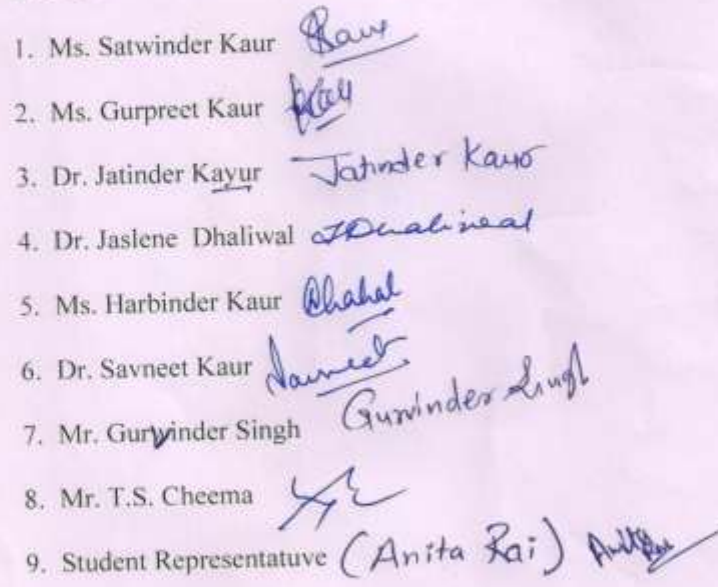 1. Ms. Satwinder Kaur Kaur
2. Ms. Gurpreet Kaur Kaur
3. Dr. Jatinder Kayur Jatinder Kaur
4. Dr. Jaslene Dhaliwal JDhaliwal
5. Ms. Harbinder Kaur Chahal
6. Dr. Savneet Kaur Savneet
7. Mr. Gurvinder Singh Gurvinder Singh
8. Mr. T.S. Cheema
9. Student Representatuve (Anita Rai)